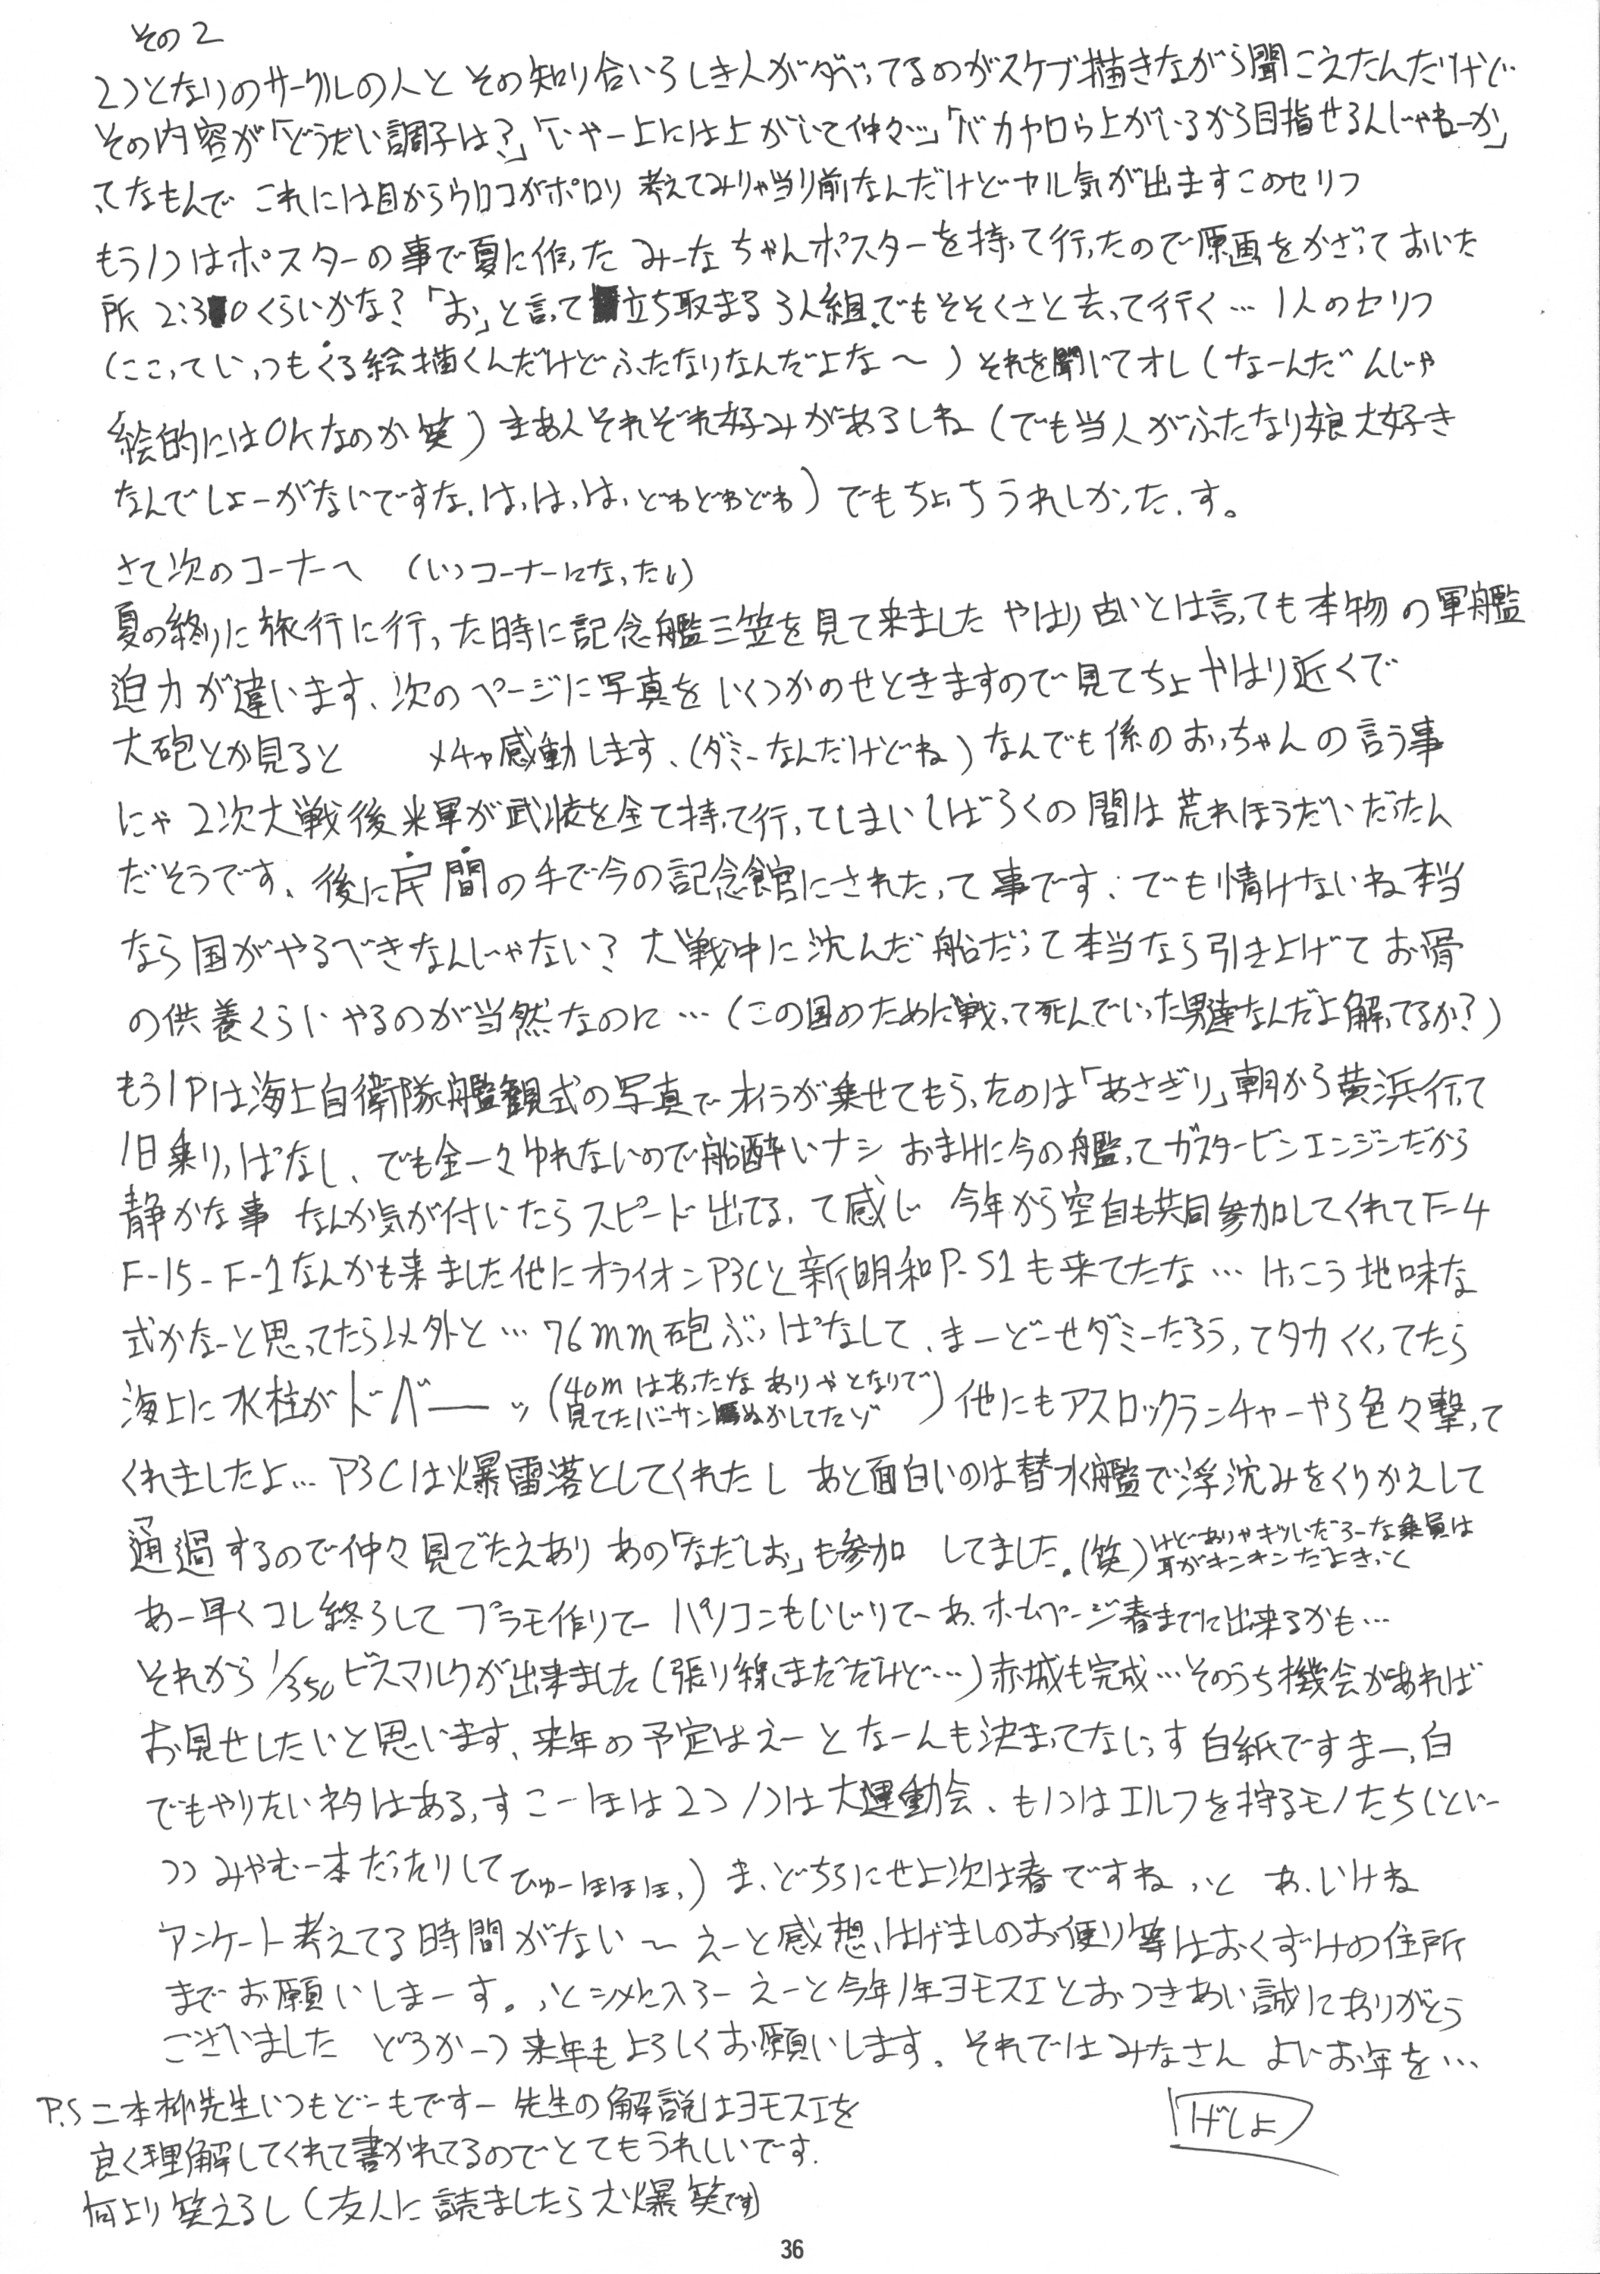 その2
2つとなりのサークルの人と その知り合いらしき人がダベってるのがスケブ描きながら聞こえたんだけど
その内容が「どうだい調子は?」「いやー上には上がいて仲々…」「バカヤロウ上がいるから目指せるんじゃねーか」
ってなもんで これには目からウロコがポロリ 考えてみりゃ当り前なんだけどヤル気が出ますこのセリフ
もう1つはポスターの事で夏に作った みーなちゃんポスターを持って行ったので原画をかざっておいた
所 2:30くらいかな?「お」と言って立ち取まる 3人組 でもそそくさと去って行く… 1人のセリフ
(ここっていっつもくる絵描くんだけどふたなりなんだよな〜) それを聞いてオレ (なーんだ んじゃ
絵的にはOKなのか笑) まあ人それぞれ好みがあるしね (でも当人がふたなり娘大好き
なんでしょーがないですな.はっはっは、どわどわどわ) でもちょっちうれしかったっす。
さて次のコーナーへ (いつコーナーになったい)
夏の終りに旅行に行った時に記念艦三笠を見て来ました やはり古いとは言っても本物の軍艦
迫力が違います、次のページに写真をいくつかのせときますので見てちょ やはり近くで
大砲とか見ると メチャ感動します、(ダミーなんだけどね) なんでも係のおっちゃんの言う事
にゃ 2次大戦後米軍が武装を全て持って行ってしまいしばらくの間は荒れほうだいだったん
だそうです、後に民間の手で今の記念館にされたって事です、でも情けないね本当
なら国がやるべきなんじゃない? 大戦中に沈んだ船だって本当なら引き上げてお骨
の供養くらいやるのが当然なのに…(この国のために戦って死んでいった男達なんだよ解ってるか?)
もう1Pは海上自衛隊艦観式の写真でオイラが乗せてもらったのは「あさぎり」朝から横浜行って
1日乗りっぱなし、でも全々ゆれないので船酔いナシ おまけに今の艦ってガスタービンエンジンだから
静かな事 なんか気が付いたらスピード出てるって感じ 今年から空自も共同参加してくれてF-4
F-15-F-1なんかも来ました他にオライオンP3Cと新明和P-S1も来てたな… けっこう地味な
式かなーと思ってたら以外と…76mm砲ぶっぱなして、まーどーせダミーだろうってタカくくってたら
海上に水柱がドバーーッ (40mはあったな ありゃとなりで見てたバーサン腰ぬかしてたゾ) 他にもアスロックランチャーやら色々撃って
くれましたよ… P3Cは爆雷落としてくれたし あと面白いのは潜水艦で浮沈みをくりかえして
通過するので仲々見ごたえあり あの「なだしお」も参加 してました.(笑) けどありゃキツいだろーな乗員は耳がキンキンだよきっと
あー早くコレ終らしてプラモ作りてー パソコンもいじりてーあ、ホームページ春までに出来るかも…
それから 1/350ビスマルクが出来ました (張り線まだだけど…) 赤城も完成…そのうち機会があれば
お見せしたいと思います、来年の予定はえーとなーんも決まってないっす 白紙ですまーっ白
でもやりたいネタはあるっすこーほは2つ 1つは大運動会、も1つはエルフを狩るモノたち (といー
つつみやむー本だったりして ひゅーほほほっ) ま、どちらにせよ次は春ですねっと あ、いけね
アンケート考えてる時間がない〜 えーと感想、はげましのお便り等はおくずけの住所
までお願いしまーす。っとシメに入ろー えーと今年1年ヨモスエとおつきあい誠にありがとう
ございました どうかーつ来年もよろしくお願いします. それではみなさん よいお年を…
げしょ
P.S 二本柳先生いつもどーもですー 先生の解説はヨモスエを
良く理解してくれて書かれてるのでとてもうれしいです.
何より笑えるし (友人に読ましたら大爆笑です)
36